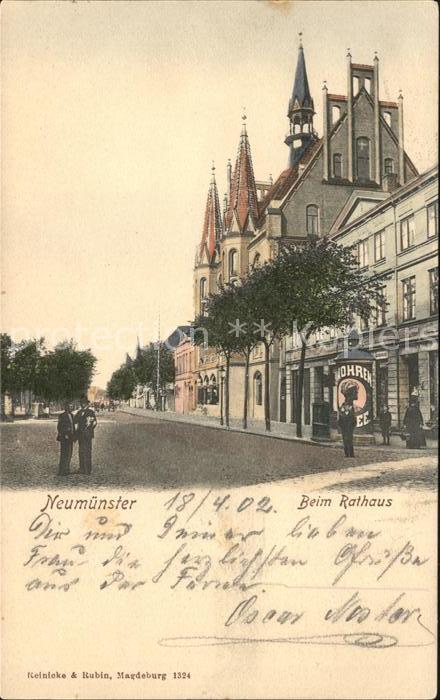 MOHREN
EE
Neumünster
18/4.02.
Beim Rathaus
Dir und Deiner lieben
Frau die herzlichsten Grüße
aus der Ferne
Oscar
Reinicke & Rubin, Magdeburg 1324